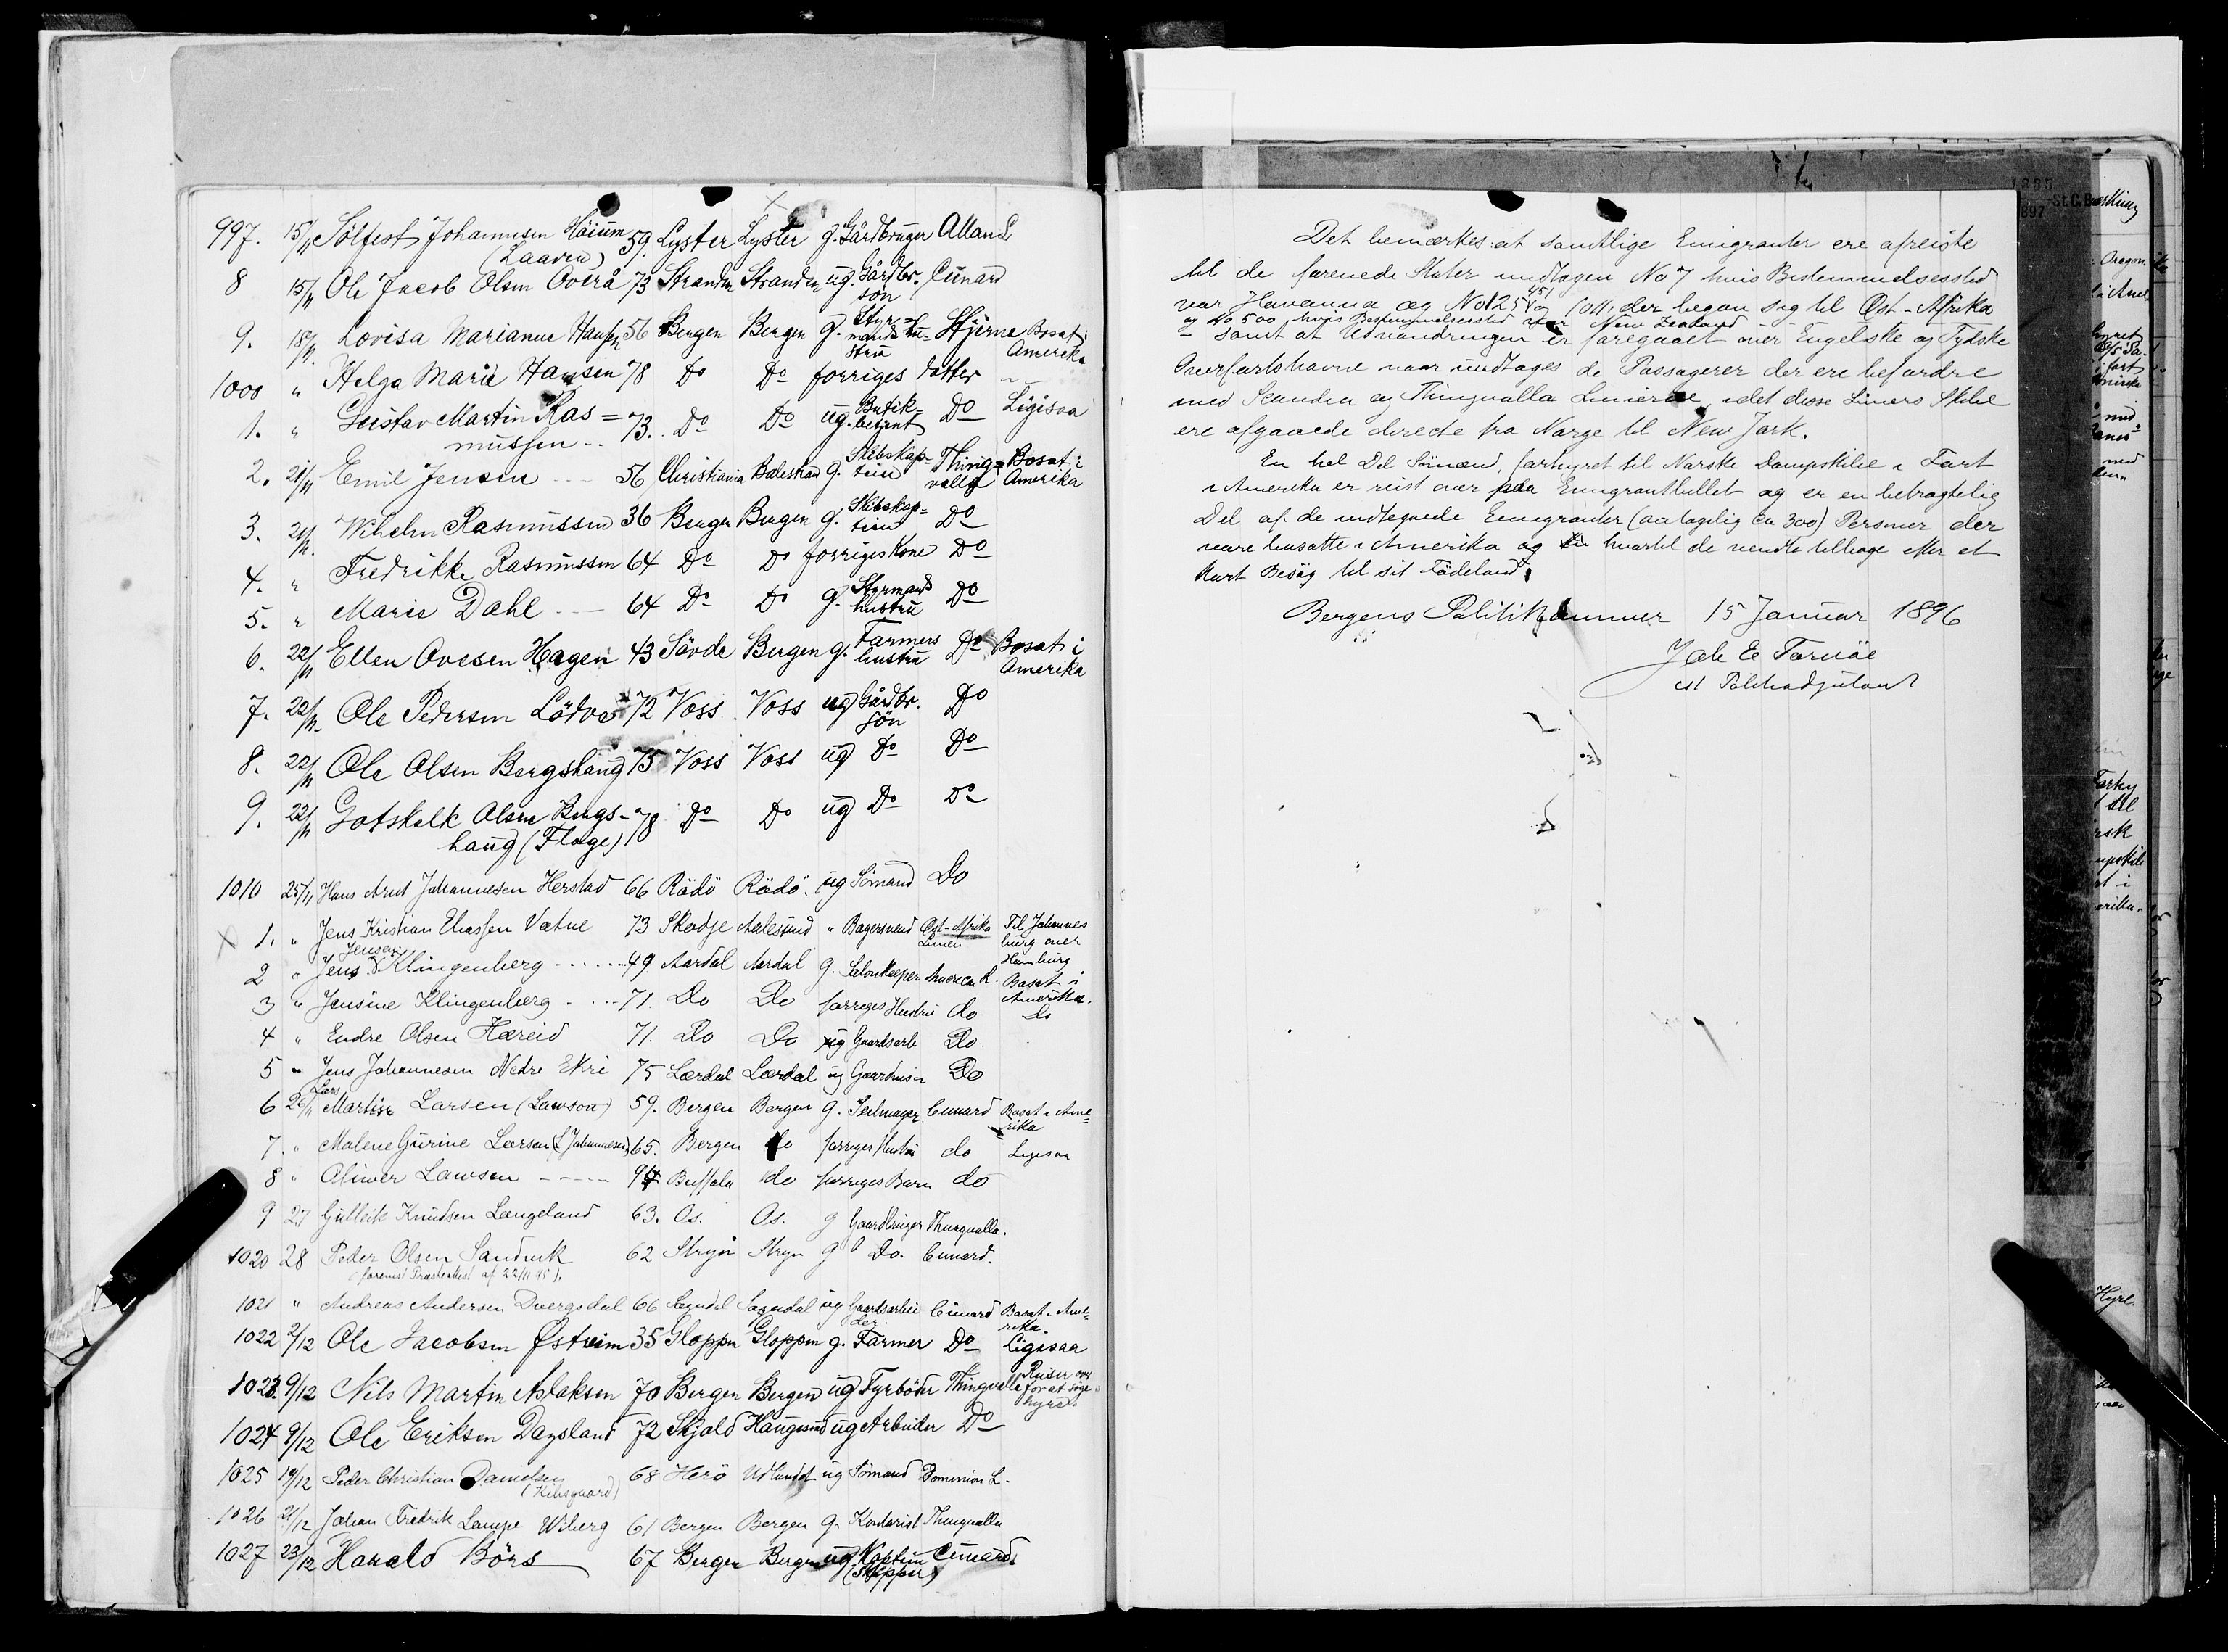 997. 15/11 Sölfest Johannesen Höium 59. Lyster Lyster g. Gårdbruger Allan L
(Laaven)
8 15/11 Ole Jacob Olsen Överå 73 Stranden Stranden ug. Gårdbr. Cunard
sön
9. 18/11. Lovisa Marianne Hansen 56 Bergen Bergen g. Styr= Stjerne Bosat i
mands hu= Amerika
stru
1000 " Helga Marie Hansen 78 Do Do forriges datter "
1. " Gustav Martin Ras= 73. Do Do ug. Butik= Do Ligesaa
mussen .. betjent
2. 21/11 Emil Jensen -- 56 Christiania Balestrand g. Skibskap= Thing= Bosat i
tein valla Amerika
3. 21/11. Wilhelm Rasmussen 36 Bergen Bergen g. Skibskap= Do
tein
4. " Fredrikke Rasmussen 64 Do Do forriges Kone Do
5. " Marie Dahl -- 64 Do Do g. Styrmands Do
hustru
6. 22/11 Ellen Ovesen Hagen 43 Sövde Bergen g. Farmers Do Bosat i
hustru Amerika
7. 22/11. Ole Pedersen Lödve 72 Voss Voss ug Gårdbr. Do
sön
8. 22/11 Ole Olsen Bergshaug 75 Voss Voss ug Do Do
9. 22/11 Gotskalk Olsen Bergs- 78 Do Do ug Do Do
haug (Flage)
1010 25/11 Hans Arnt Johannesen Herstad 66 Rödö Rödö. ug Sömand Do
X 1. " Jens Kristian Eliassen Vatne 73 Skodje Aalesund " Bagersvend Öst-Afrika Til Johannes
Linien burg over
Hamburg
2 " Jens Jensen Klingenberg ------ 49 Aardal Aardal g. Salonkeeper American L. Bosat i
Amerika.
3 " Jensine Klingenberg ---- 71. Do Do forriges Hustru do Do
4 " Endre Olsen Hæreid 71. Do Do ug Gaardsarb Do.
5 " Jens Johannesen Nedre Ekri 75 Lærdal Lærdal ug Gaardmand Do
6 26/11 Lars Martin Larsen (Lawson) 59. Bergen Bergen g. Seilmager Cunard Bosat i Ame=
rika
7. " Malene Gurine Larsen (f Johannesen) 65. Bergen do forriges Hustru do Ligesaa
8 " Oliver Lawson ----- 94 Buffalo do forriges Barn do
9 27 Gulleik Knudsen Langeland 63. Os. Os. g Gaardbruger Thingvalla.
1020 28 Peder Olsen Sandvik 62 Stryn Stryn g Do. Cunard.
forevist Præsteattest af 22/11 95).
1021 " Andreas Andersen Dvergsdal 66 Sogndal Sogndal ug Gaardsarbei Cunard Bosat i Ame=
der. rika.
1022 2/12 Ole Jacobsen Östreim 35 Gloppen Gloppen g. Farmer Do Ligesaa
1023. 9/12 Nils Martin Aslaksen 70 Bergen Bergen ug Fyrböder Thingvalla Reiser over
for at söge
hyre.
1024 9/12 Ole Eriksen Dagsland 72 Skjold Haugesund ug Arbeider Do
1025 19/12 Peder Christian Danielsen 68 Herö Udlandet ug Sömand Dominion L.
(Kilsgaard)
1026 21/12 Johan Fredrik Lampe Wiberg 61 Bergen Bergen g. Kontorist Thingvalla
1027 23/12 Harald Börs 67 Bergen Bergen ug Kaptein Cunard.
(Skipper)
Det bemærkes: at samtlige Emigranter ere afreiste
til de forenede Stater undtagen No 7 hvis Bestemmelsessted
var Havanna og No 125, 451 og 1011, der begav sig til Öst-Afrika
og No 500, hvis Bestemmelsessted var New Zealand
- samt at Udvandringen er foregaaet over Engelske og Tydske
Overfartshavne naar undtages de Passagerer der ere befordre
med Scandia og Thingvalla Linierne, idet disse Liniers Skibe
ere afgaaede directe fra Norge til New York.
En hel Del Sömænd, forhyret til Norske Dampskibe i Fart
i Amerika er reist over paa Emigrantbillet og er en betragtelig
Del af de indtegnede Emigranter (antagelig ca 300) Personer der
vare bosatte i Amerika og hvortil de vendte tilbage efter et
kort Besög til sit Födeland.
Bergens Politikammer 15 Januar 1896
Joh E Fornöe
cst Politiadjutant
1895
1897
St. C.